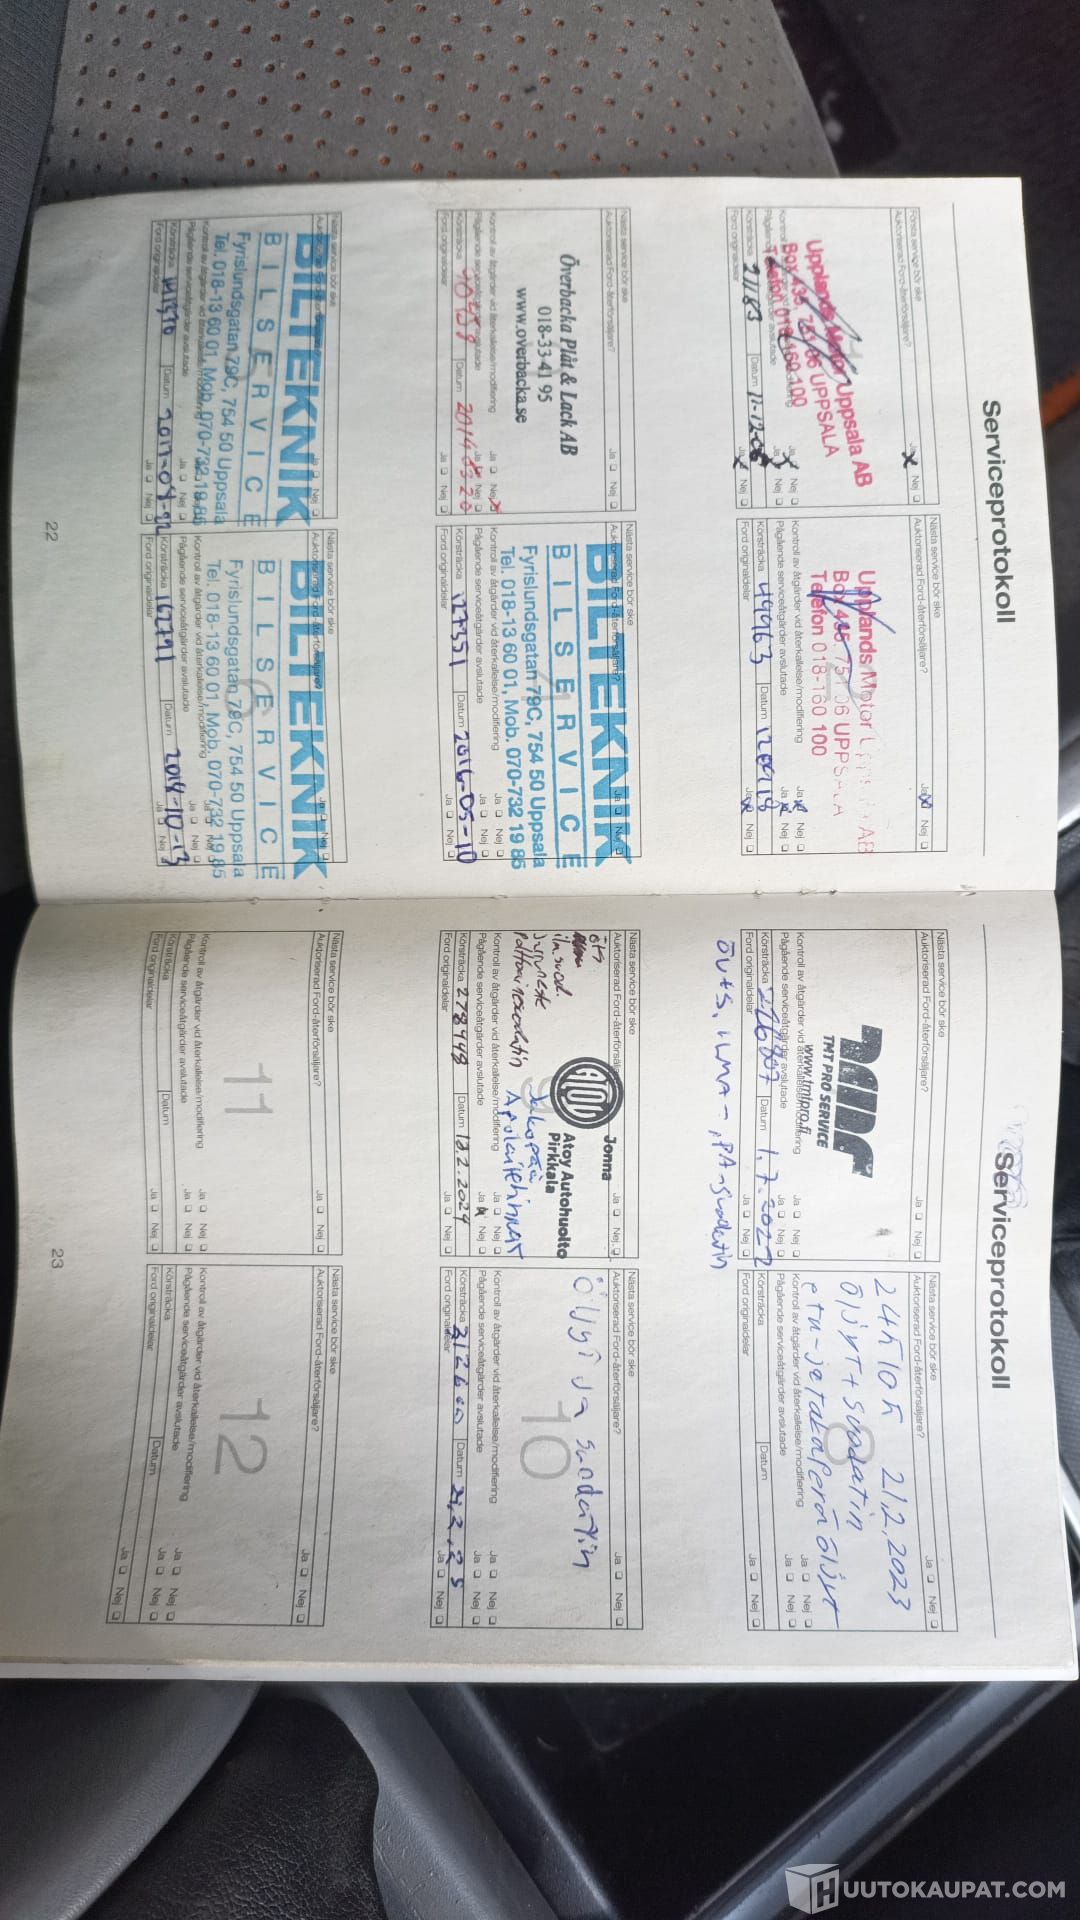 Serviceprotokoll
Första service bör ske
Auktoriserad Ford-återförsäljare?
Ja Nej
Upplands Motor Uppsala AB
Box 435 751 06 UPPSALA
Telefon 018-160 100
Körsträcka 21183 Datum 11-12-06
Ford originaldelar Ja Nej
Nästa service bör ske
Auktoriserad Ford-återförsäljare?
Ja Nej
Upplands Motor
Box 435 751 06 UPPSALA
Telefon 018-160 100
Kontroll av åtgärder vid återkallelse/modifiering Ja Nej
Pågående serviceåtgärder avslutade Ja Nej
Körsträcka 49963 Datum 120918
Ford originaldelar Ja Nej
Nästa service bör ske
Auktoriserad Ford-återförsäljare? Ja Nej
Överbacka Plåt & Lack AB
018-33 41 95
www.overbacka.se
Kontroll av åtgärder vid återkallelse/modifiering Ja Nej
Pågående serviceåtgärder avslutade Ja Nej
Körsträcka Datum
Ford originaldelar Ja Nej
Nästa service bör ske
Auktoriserad Ford-återförsäljare? Ja Nej
BILTEKNIK
BILSERVICE
Fyrislundsgatan 79C, 754 50 Uppsala
Tel. 018-13 60 01, Mob. 070-732 19 85
Kontroll av åtgärder vid återkallelse/modifiering Ja Nej
Pågående serviceåtgärder avslutade Ja Nej
Körsträcka 127351 Datum 2016-05-10
Ford originaldelar Ja Nej
Nästa service bör ske
BILTEKNIK
BILSERVICE
Fyrislundsgatan 79C, 754 50 Uppsala
Tel. 018-13 60 01, Mob. 070-732 19 85
Kontroll av åtgärder vid återkallelse/modifiering
Pågående serviceåtgärder avslutade Ja Nej
Körsträcka 141370 Datum
Ford originaldelar Ja Nej
Nästa service bör ske
Auktoriserad Ford-återförsäljare? Ja Nej
BILTEKNIK
BILSERVICE
Fyrislundsgatan 79C, 754 50 Uppsala
Tel. 018-13 60 01, Mob. 070-732 19 85
Kontroll av åtgärder vid återkallelse/modifiering
Pågående serviceåtgärder avslutade Ja Nej
Körsträcka 162791 Datum 2018-10-13
Ford originaldelar Ja Nej
22
Serviceprotokoll
Nästa service bör ske
Auktoriserad Ford-återförsäljare? Ja Nej
TMT PRO SERVICE
www.tmtpro.fi
Kontroll av åtgärder vid återkallelse/modifiering Ja Nej
Pågående serviceåtgärder avslutade Ja Nej
Körsträcka Datum 1.7.2022
Ford originaldelar Ja Nej
Nästa service bör ske
Auktoriserad Ford-återförsäljare? Ja Nej
21.2.2023
8
öljyt + suodatin
etu- ja takaperä öljyt
Kontroll av åtgärder vid återkallelse/modifiering Ja Nej
Pågående serviceåtgärder avslutade Ja Nej
Körsträcka Datum
Ford originaldelar Ja Nej
Nästa service bör ske
Auktoriserad Ford-återförsäljare? Ja Nej
Jonna
AD
Atoy Autohuolto
Pirkkala
ilmsuod.
Jakopää
Apulaitehihnat
Kontroll av åtgärder vid återkallelse/modifiering Ja Nej
Pågående serviceåtgärder avslutade Ja Nej
Körsträcka 278448 Datum 12.2.2024
Ford originaldelar Ja Nej
Nästa service bör ske
Auktoriserad Ford-återförsäljare? Ja Nej
Öljyt ja suodatin
10
Kontroll av åtgärder vid återkallelse/modifiering Ja Nej
Pågående serviceåtgärder avslutade Ja Nej
Körsträcka Datum
Ford originaldelar Ja Nej
Nästa service bör ske
Auktoriserad Ford-återförsäljare? Ja Nej
11
Kontroll av åtgärder vid återkallelse/modifiering Ja Nej
Pågående serviceåtgärder avslutade Ja Nej
Körsträcka Datum
Ford originaldelar Ja Nej
Nästa service bör ske
Auktoriserad Ford-återförsäljare? Ja Nej
12
Kontroll av åtgärder vid återkallelse/modifiering Ja Nej
Pågående serviceåtgärder avslutade Ja Nej
Körsträcka Datum
Ford originaldelar Ja Nej
23
HUUTOKAUPAT.COM